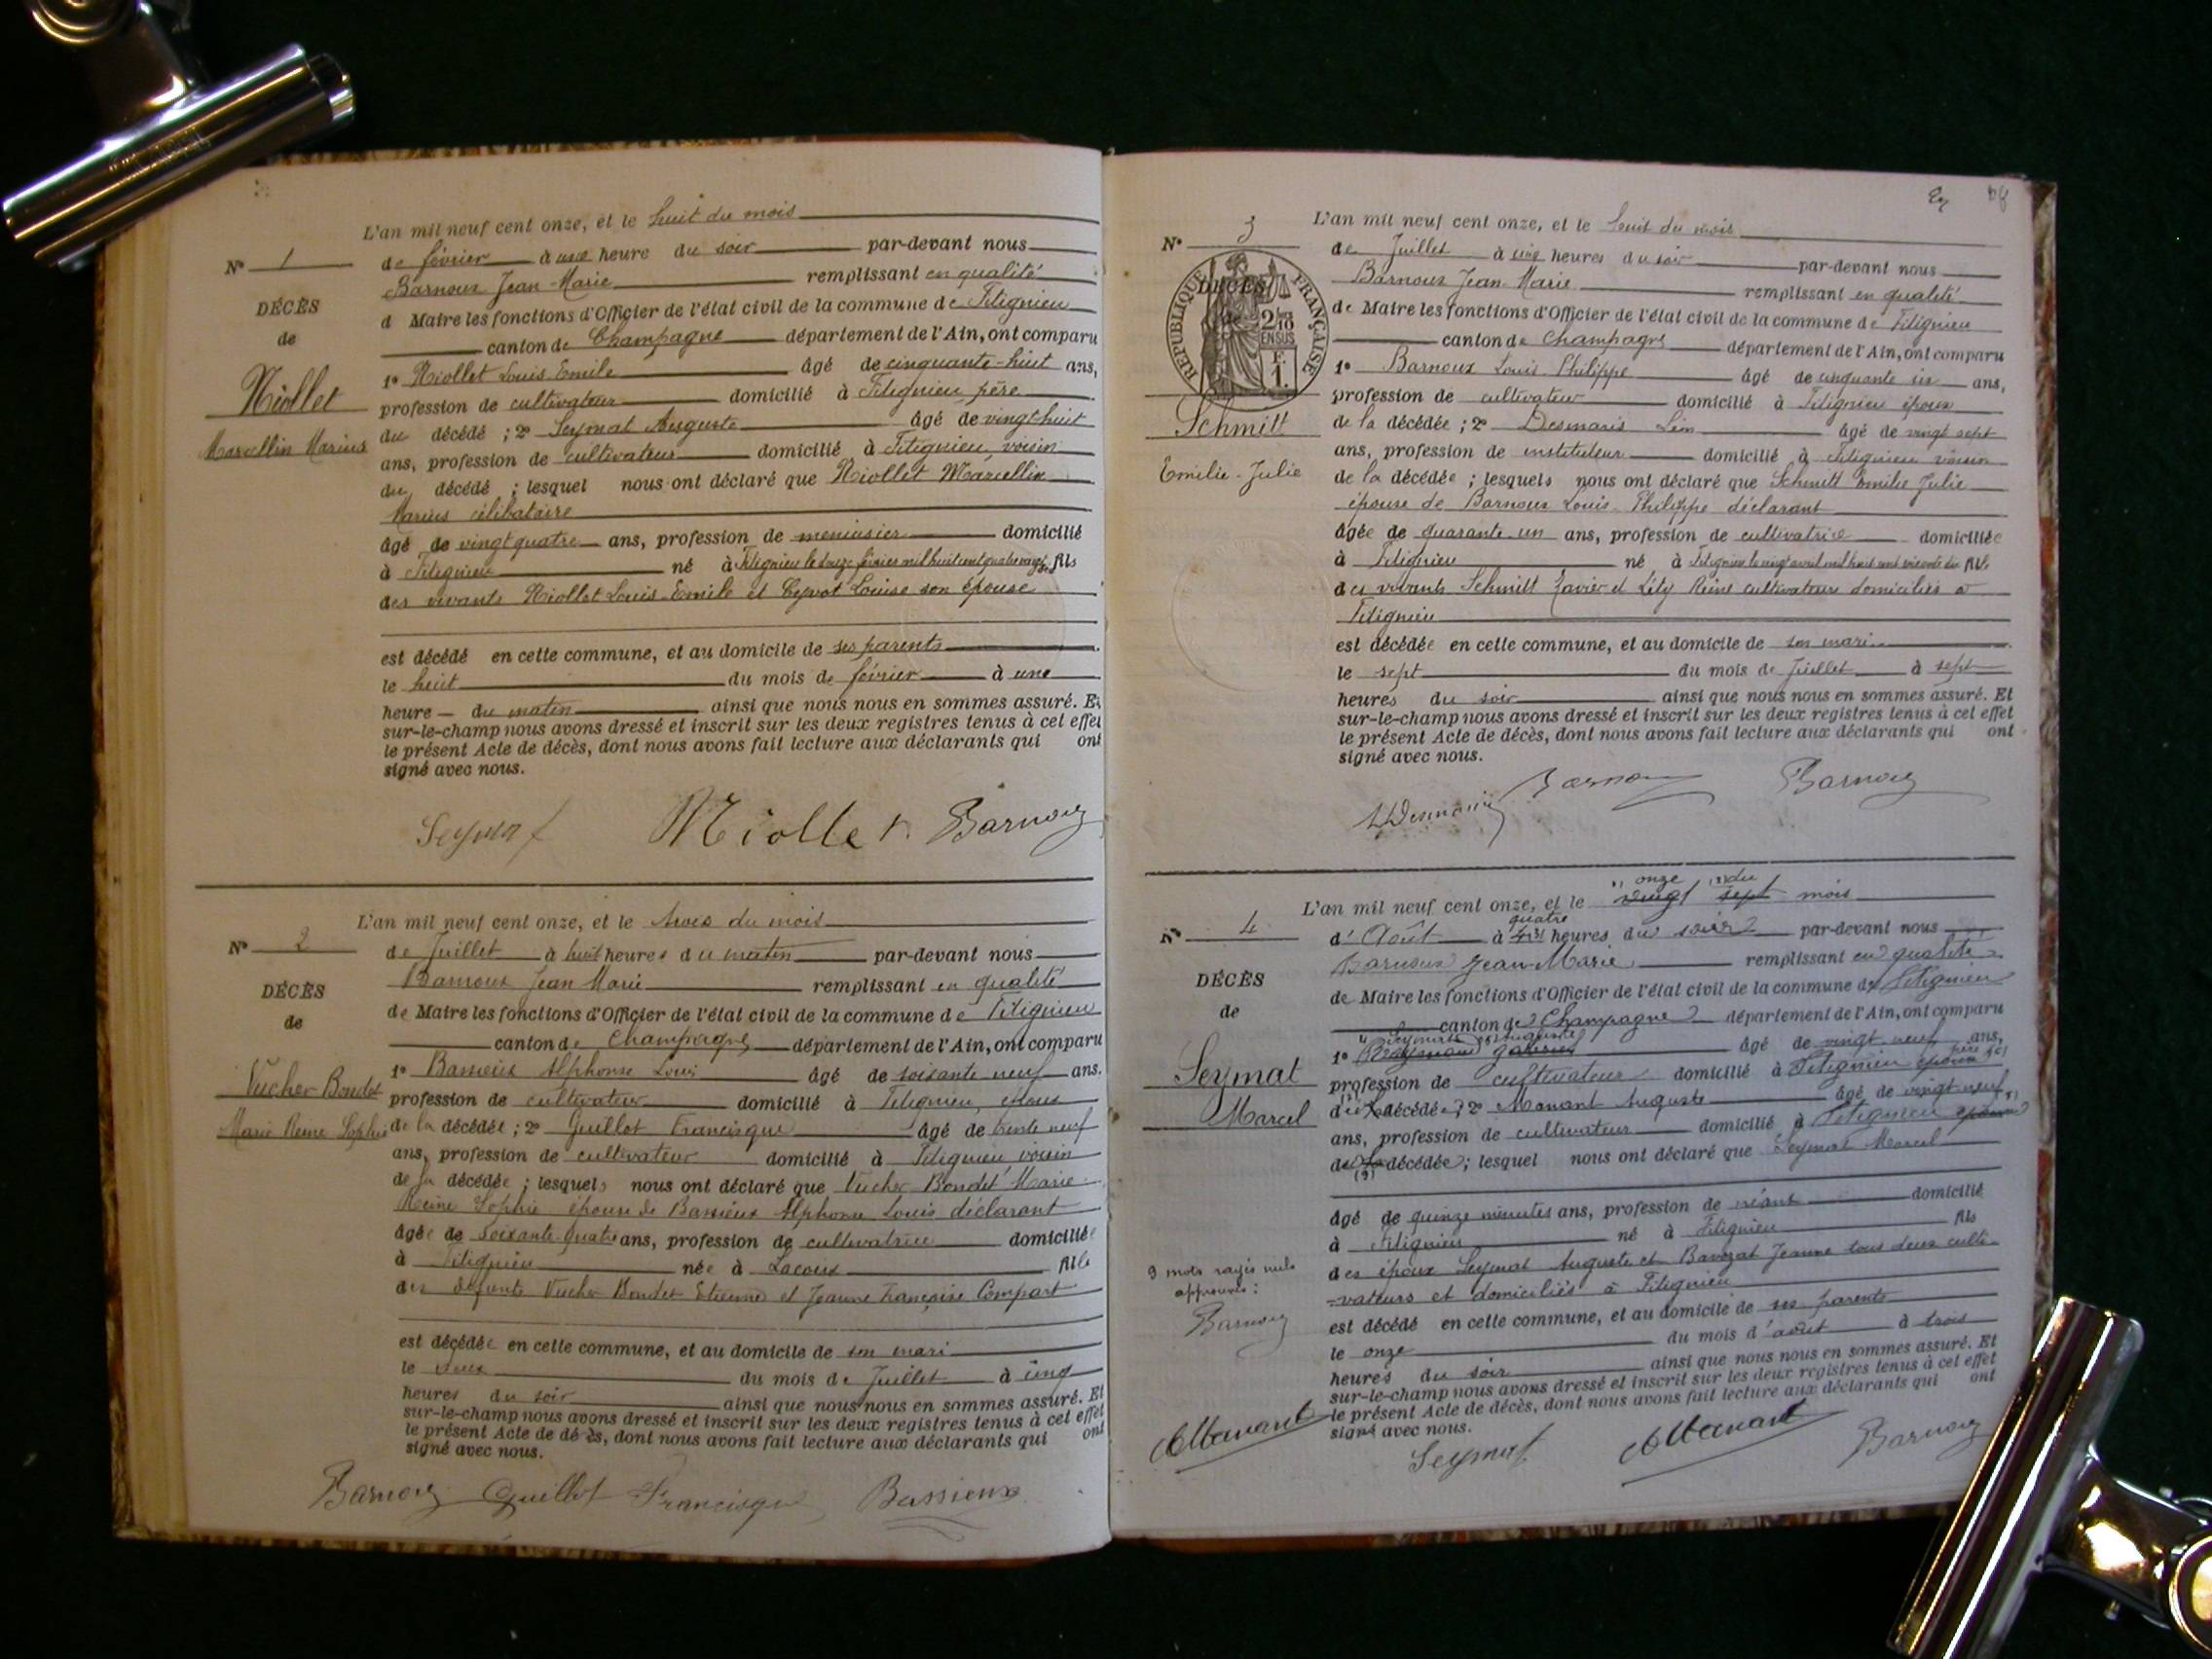 L'an mil neuf cent onze, et le huit du mois
N° 1
de février à une heure du soir par-devant nous
Barnoux Jean-Marie remplissant en qualité
DÉCÈS
d Maire les fonctions d'Officier de l'état civil de la commune de Fitignieu
de
canton de Champagne département de l'Ain, ont comparu
1° Niollet Louis Emile âgé de cinquante-huit ans,
Niollet
profession de cultivateur domicilié à Fitignieu père
Marcellin Marius
du décédé ; 2° Seymat Auguste âgé de vingt-huit
ans, profession de cultivateur domicilié à Fitignieu, voisin
du décédé ; lesquel nous ont déclaré que Niollet Marcellin
Marius célibataire
âgé de vingt quatre ans, profession de menuisier domicilié
à Fitignieu né à Fitignieu le février mil huit cent quatre vingt fils
des vivants Niollet Louis-Emile et Louise son épouse
est décédé en cette commune, et au domicile de ses parents
le huit du mois de février à une
heure du matin ainsi que nous nous en sommes assuré. Et
sur-le-champ nous avons dressé et inscrit sur les deux registres tenus à cet effet
le présent Acte de décès, dont nous avons fait lecture aux déclarants qui ont
signé avec nous.
Seymat Niollet Barnoux
L'an mil neuf cent onze, et le trois du mois
N° 2
de Juillet à huit heures du matin par-devant nous
Barnoux Jean Marie remplissant en qualité
DÉCÈS
de Maire les fonctions d'Officier de l'état civil de la commune de Fitignieu
de
canton de Champagne département de l'Ain, ont comparu
1° Bassieux Alphonse Louis âgé de soixante neuf ans.
Vucher Bondet
profession de cultivateur domicilié à Fitignieu, époux
Marie Reine Sophie
de la décédée ; 2° Guillot Francisque âgé de trente neuf
ans, profession de cultivateur domicilié à Fitignieu voisin
de la décédée ; lesquels nous ont déclaré que Vucher Bondet Marie
Reine Sophie épouse de Bassieux Alphonse Louis déclarant
âgée de soixante-quatre ans, profession de cultivatrice domiciliée
à Fitignieu née à Lacoux fille
des défunts Vucher Bondet Etienne et Jeanne Françoise Compart
est décédée en cette commune, et au domicile de son mari
le deux du mois de Juillet à cinq
heures du soir ainsi que nous nous en sommes assuré. Et
sur-le-champ nous avons dressé et inscrit sur les deux registres tenus à cet effet
le présent Acte de décès, dont nous avons fait lecture aux déclarants qui ont
signé avec nous.
Barnoux Guillot Francisque Bassieux
L'an mil neuf cent onze, et le huit du mois
N° 3
de Juillet à cinq heures du soir par-devant nous
Barnoux Jean-Marie remplissant en qualité
DÉCÈS
RÉPUBLIQUE FRANÇAISE
2/10 EN SUS
1 F.
de Maire les fonctions d'Officier de l'état civil de la commune de Fitignieu
canton de Champagne département de l'Ain, ont comparu
1° Barnoux Louis-Philippe âgé de cinquante six ans,
profession de cultivateur domicilié à Fitignieu époux
Schmitt
de la décédée ; 2° Desmaris Léon âgé de vingt sept
ans, profession de instituteur domicilié à Fitignieu voisin
Emilie-Julie
de la décédée ; lesquels nous ont déclaré que Schmitt Emilie Julie
épouse de Barnoux Louis-Philippe déclarant
âgée de quarante un ans, profession de cultivatrice domiciliée
à Fitignieu né à Fitignieu le vingt avril mil huit cent soixante dix fille
des vivants Schmitt Xavier et Léty Reine cultivateurs domiciliés à
Fitignieu
est décédée en cette commune, et au domicile de son mari
le sept du mois de Juillet à sept
heures du soir ainsi que nous nous en sommes assuré. Et
sur-le-champ nous avons dressé et inscrit sur les deux registres tenus à cet effet
le présent Acte de décès, dont nous avons fait lecture aux déclarants qui ont
signé avec nous.
L Desmaris Barnoux Barnoux
onze du
L'an mil neuf cent onze, et le vingt sept mois
quatre
N° 4
d' Août à heures du soir par-devant nous
Barnoux Jean-Marie remplissant en qualité
DÉCÈS
de Maire les fonctions d'Officier de l'état civil de la commune de Fitignieu
de
canton de Champagne département de l'Ain, ont comparu
Seymat Auguste
1° âgé de vingt neuf ans,
père
Seymat
profession de cultivateur domicilié à Fitignieu époux
Marcel
du décédé ; 2° Manant Auguste âgé de vingt-neuf
ans, profession de cultivateur domicilié à Fitignieu
du décédé ; lesquel nous ont déclaré que Seymat Marcel
âgé de quinze minutes ans, profession de néant domicilié
à Fitignieu né à Fitignieu fils
des époux Seymat Auguste et Bavozat Jeanne tous deux culti-
-vateurs et domiciliés à Fitignieu
9 mots rayés nuls
approuvés :
Barnoux
est décédé en cette commune, et au domicile de ses parents
le onze du mois d'août à trois
heures du soir ainsi que nous nous en sommes assuré. Et
sur-le-champ nous avons dressé et inscrit sur les deux registres tenus à cet effet
le présent Acte de décès, dont nous avons fait lecture aux déclarants qui ont
signé avec nous.
AManant Seymat AManant Barnoux